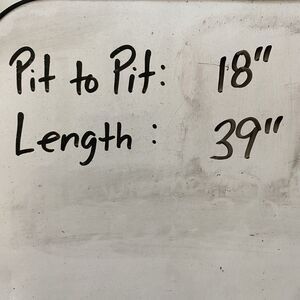 Pit to Pit: 18"
Length : 39"